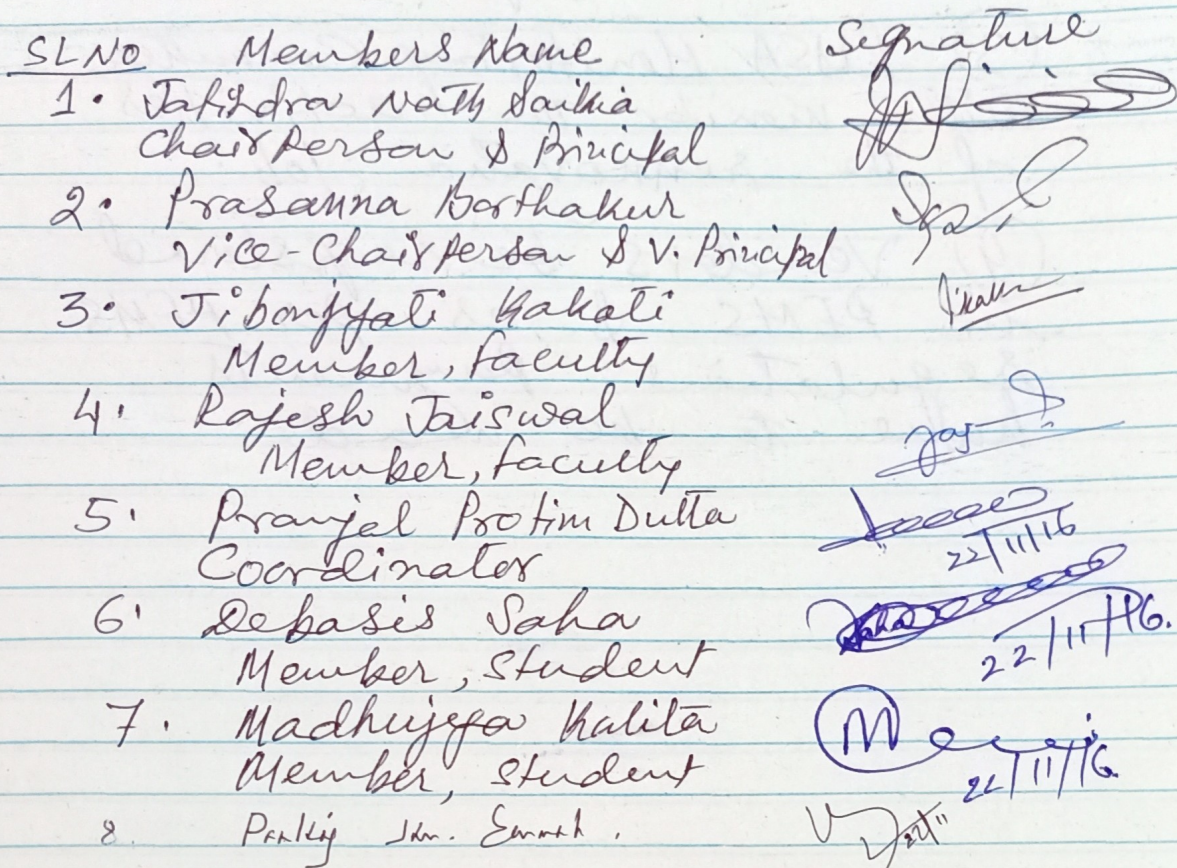 SL NO Members Name Signature
1. Jatindra Nath Saikia
Chairperson & Principal
2. Prasanna Borthakur
Vice-Chairperson & V. Principal
3. Jibonjyoti Kakati
Member, faculty
4. Rajesh Jaiswal
Member, faculty
5. Pranjal Protim Dutta
22/11/16
Coordinator
6. Debasis Saha
22/11/16.
Member, Student
7. Madhujya Kalita
Member, Student
22/11/16.
8.